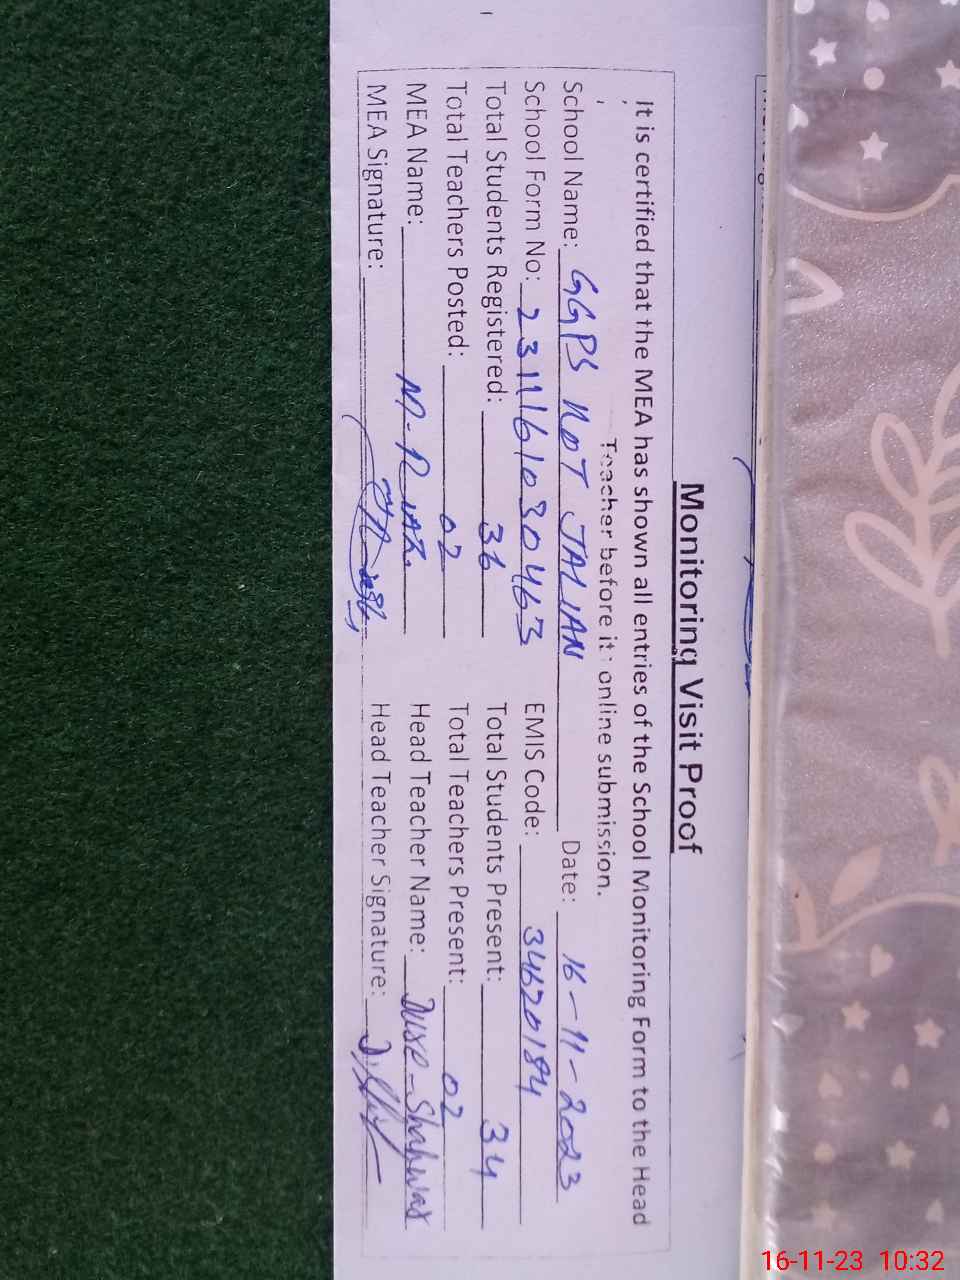 Monitoring Visit Proof
It is certified that the MEA has shown all entries of the School Monitoring Form to the Head
Teacher before it's online submission.
School Name: GGPS NOT JALIAN Date: 16-11-2023
School Form No: 2311161030463 EMIS Code: 34620184
Total Students Registered: 36 Total Students Present: 34
Total Teachers Posted: 02 Total Teachers Present: 02
MEA Name: M-RIAZ Head Teacher Name:
MEA Signature: Head Teacher Signature:
16-11-23 10:32